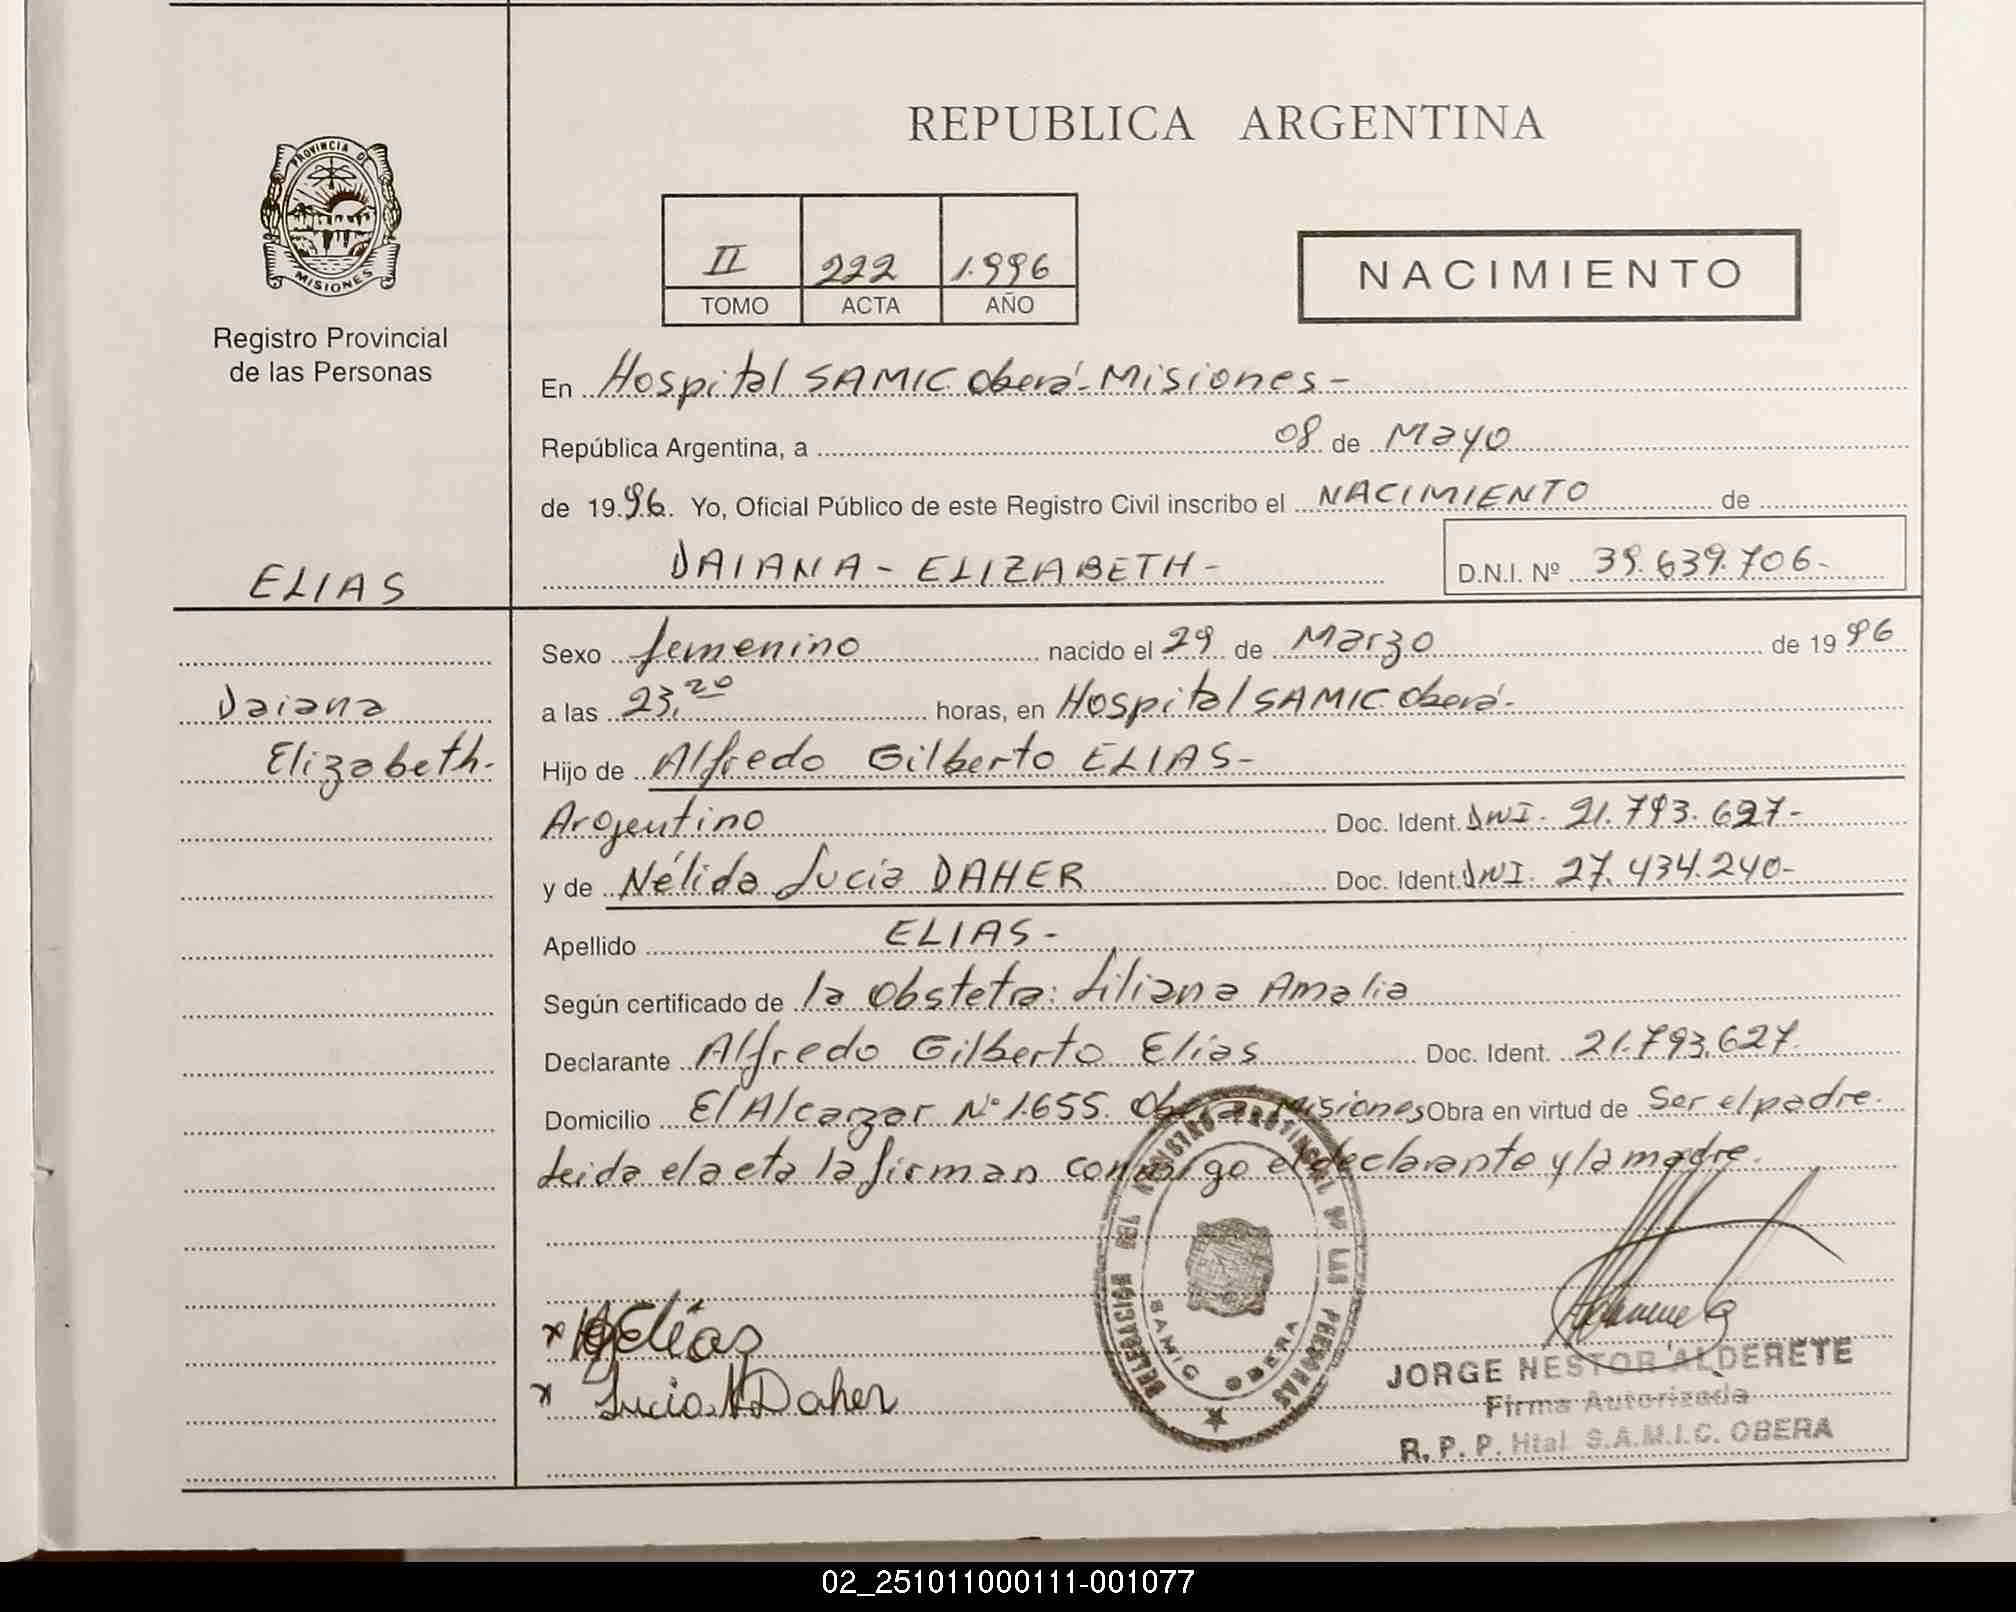 REPUBLICA ARGENTINA
PROVINCIA DE
MISIONES
Registro Provincial
de las Personas
II 222 1.996
TOMO ACTA AÑO
NACIMIENTO
En Hospital SAMIC. Oberá-Misiones-
República Argentina, a 08 de Mayo
de 1996. Yo, Oficial Público de este Registro Civil inscribo el NACIMIENTO de
DAIANA - ELIZABETH -
D.N.I. Nº 39.639.706-
ELIAS
Daiana
Elizabeth.
Sexo femenino nacido el 29 de Marzo de 1996
a las 23,20 horas, en Hospital SAMIC. Oberá-
Hijo de Alfredo Gilberto ELIAS-
Argentino Doc. Ident. DNI. 21.793.627-
y de Nélida Lucía DAHER Doc. Ident. DNI. 27.434.240-
Apellido ELIAS-
Según certificado de la Obstetra: Liliana Amalia
Declarante Alfredo Gilberto Elías Doc. Ident. 21.793.627.
Domicilio El Alcazar Nº 1.655. Oberá Misiones Obra en virtud de Ser el padre.
Leida el acta la firman conmigo el declarante y la madre.
DELEGACION DEL REGISTRO PROVINCIAL DE LAS PERSONAS
SAMIC OBERA
x Elías
x Lucia N Daher
JORGE NESTOR ALDERETE
Firma Autorizada
R. P. P. Htal S.A.M.I.C. OBERA
02_251011000111-001077